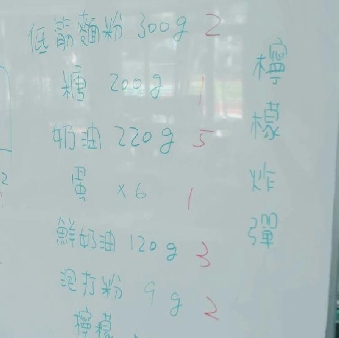 檸檬炸彈
低筋麵粉 300g 2
糖 200g 1
奶油 220g 5
蛋 x6 1
鮮奶油 120g 3
泡打粉 9g 2
檸檬